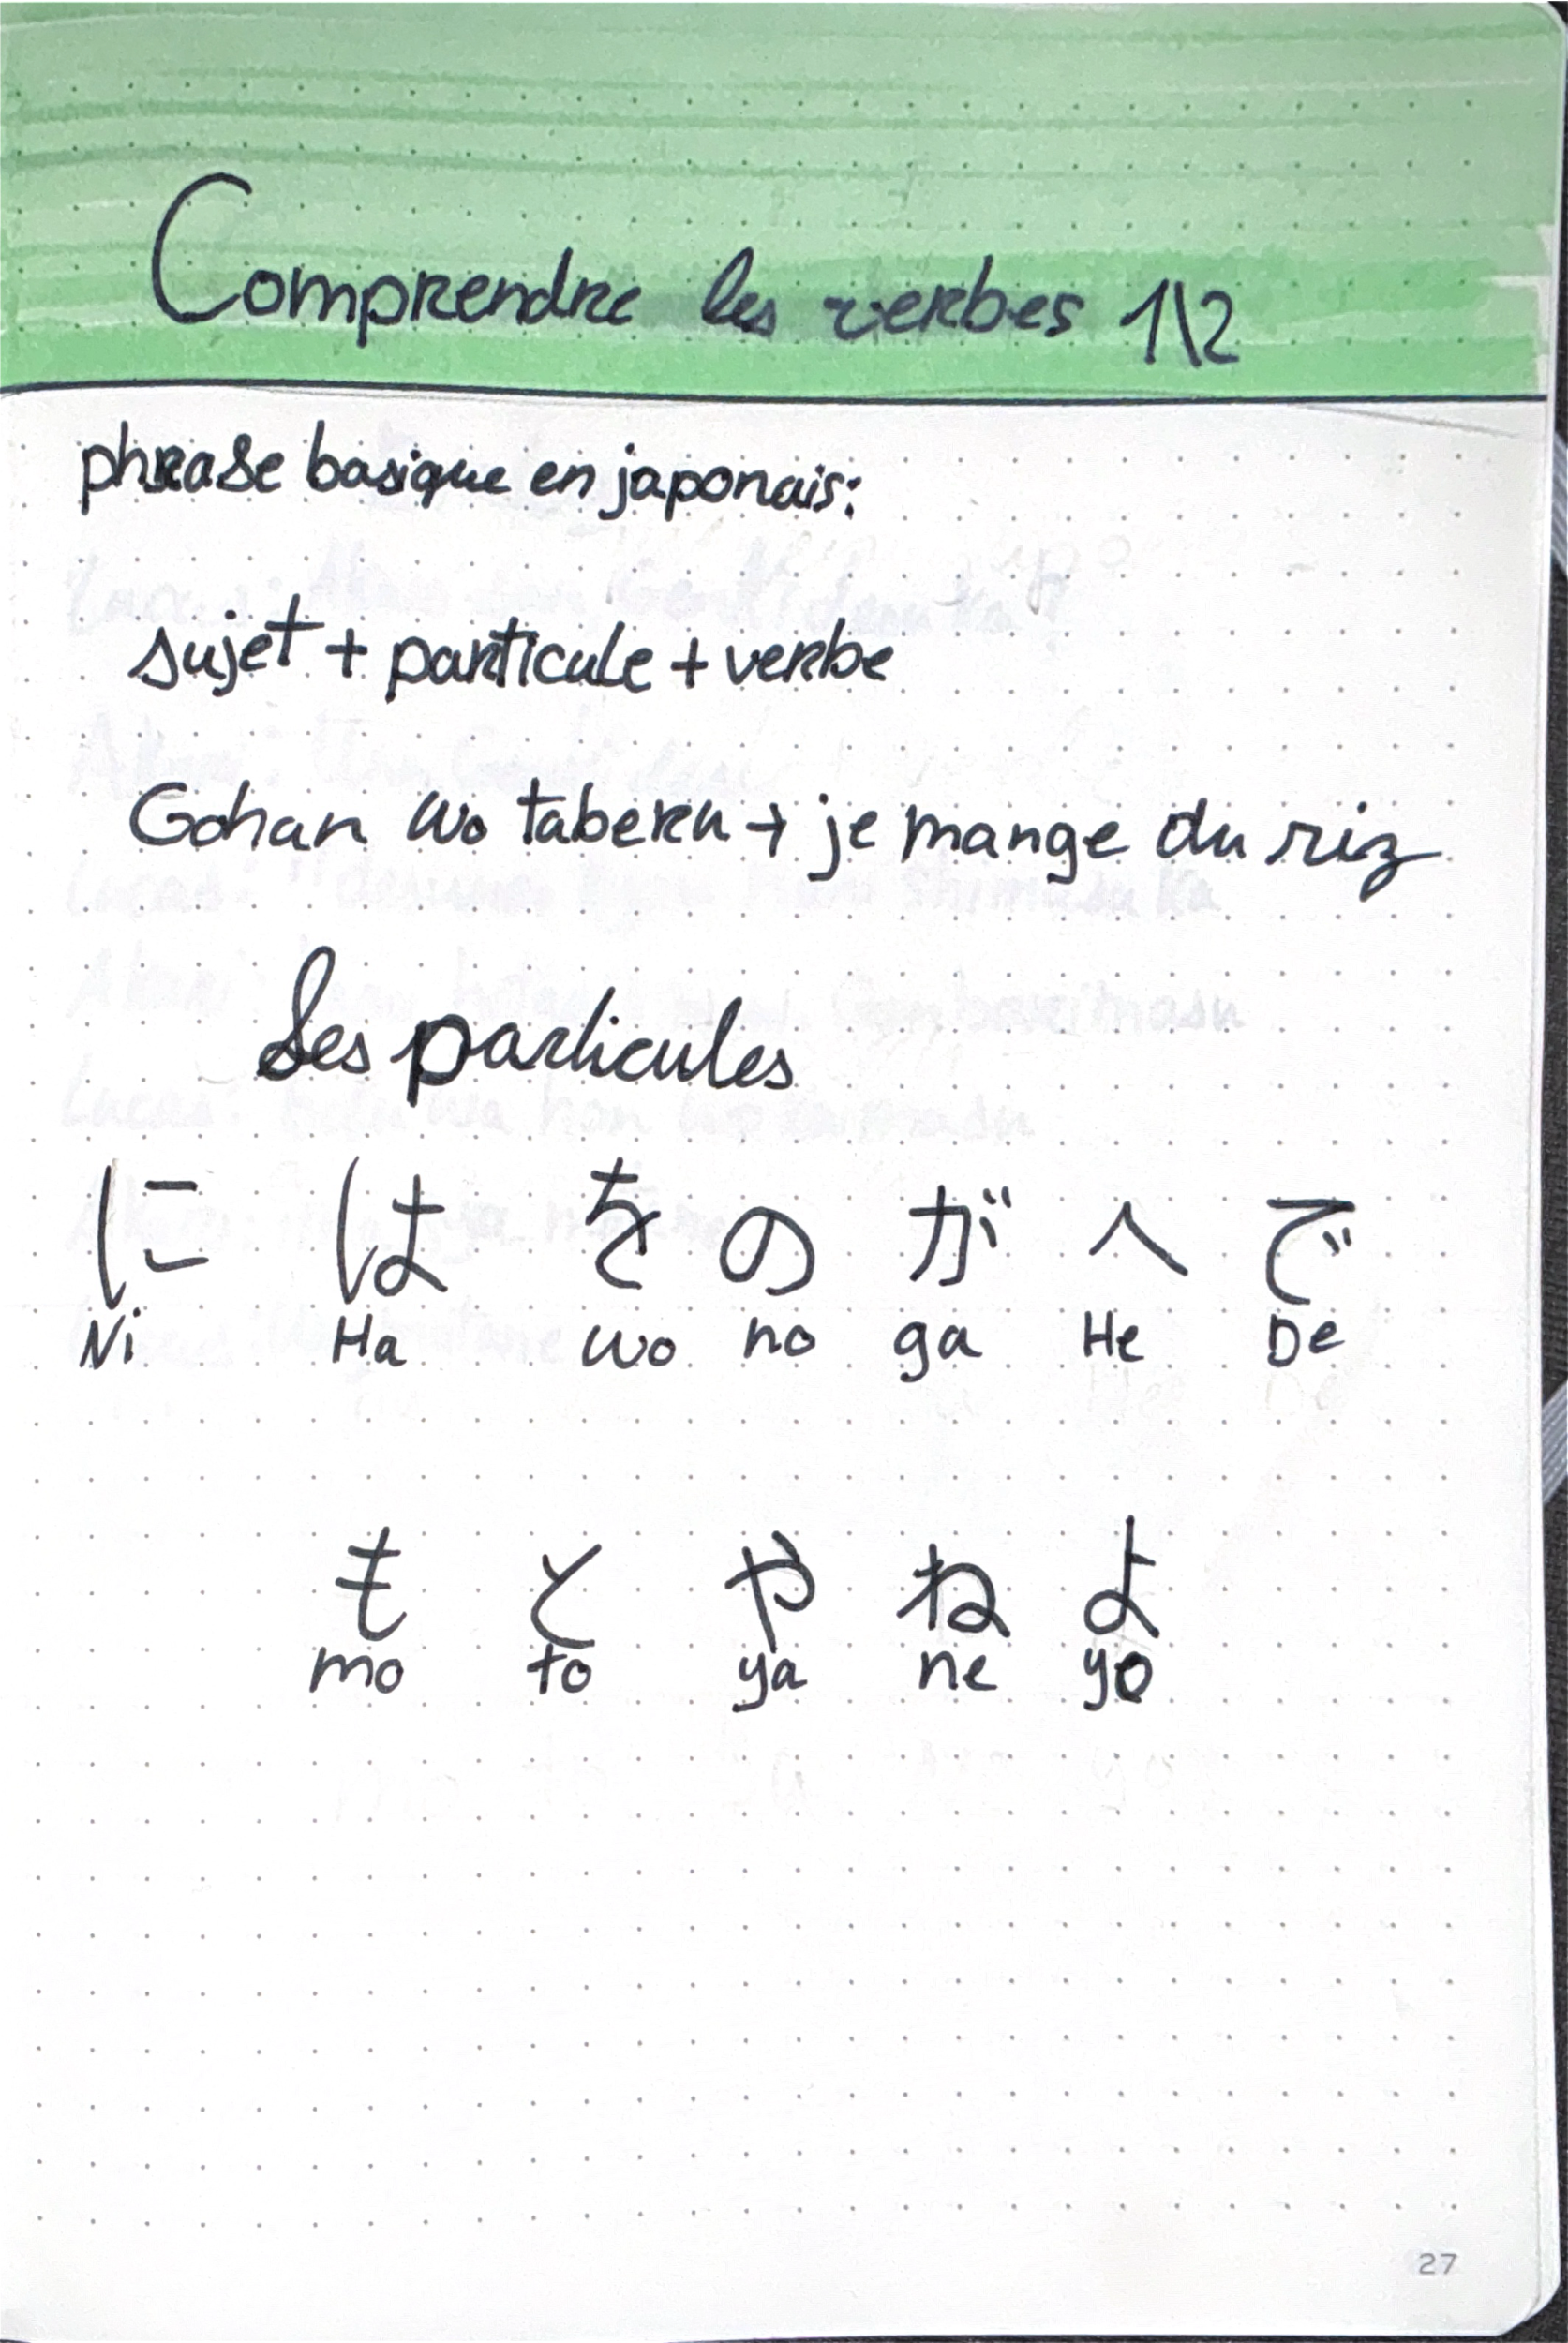 Comprendre les verbes 1\2
phrase basique en japonais:
sujet + particule + verbe
Gohan wo taberu → je mange du riz
Les particules
に は を の が へ で
Ni Ha wo no ga He De
も と や ね よ
mo to ya ne yo
27